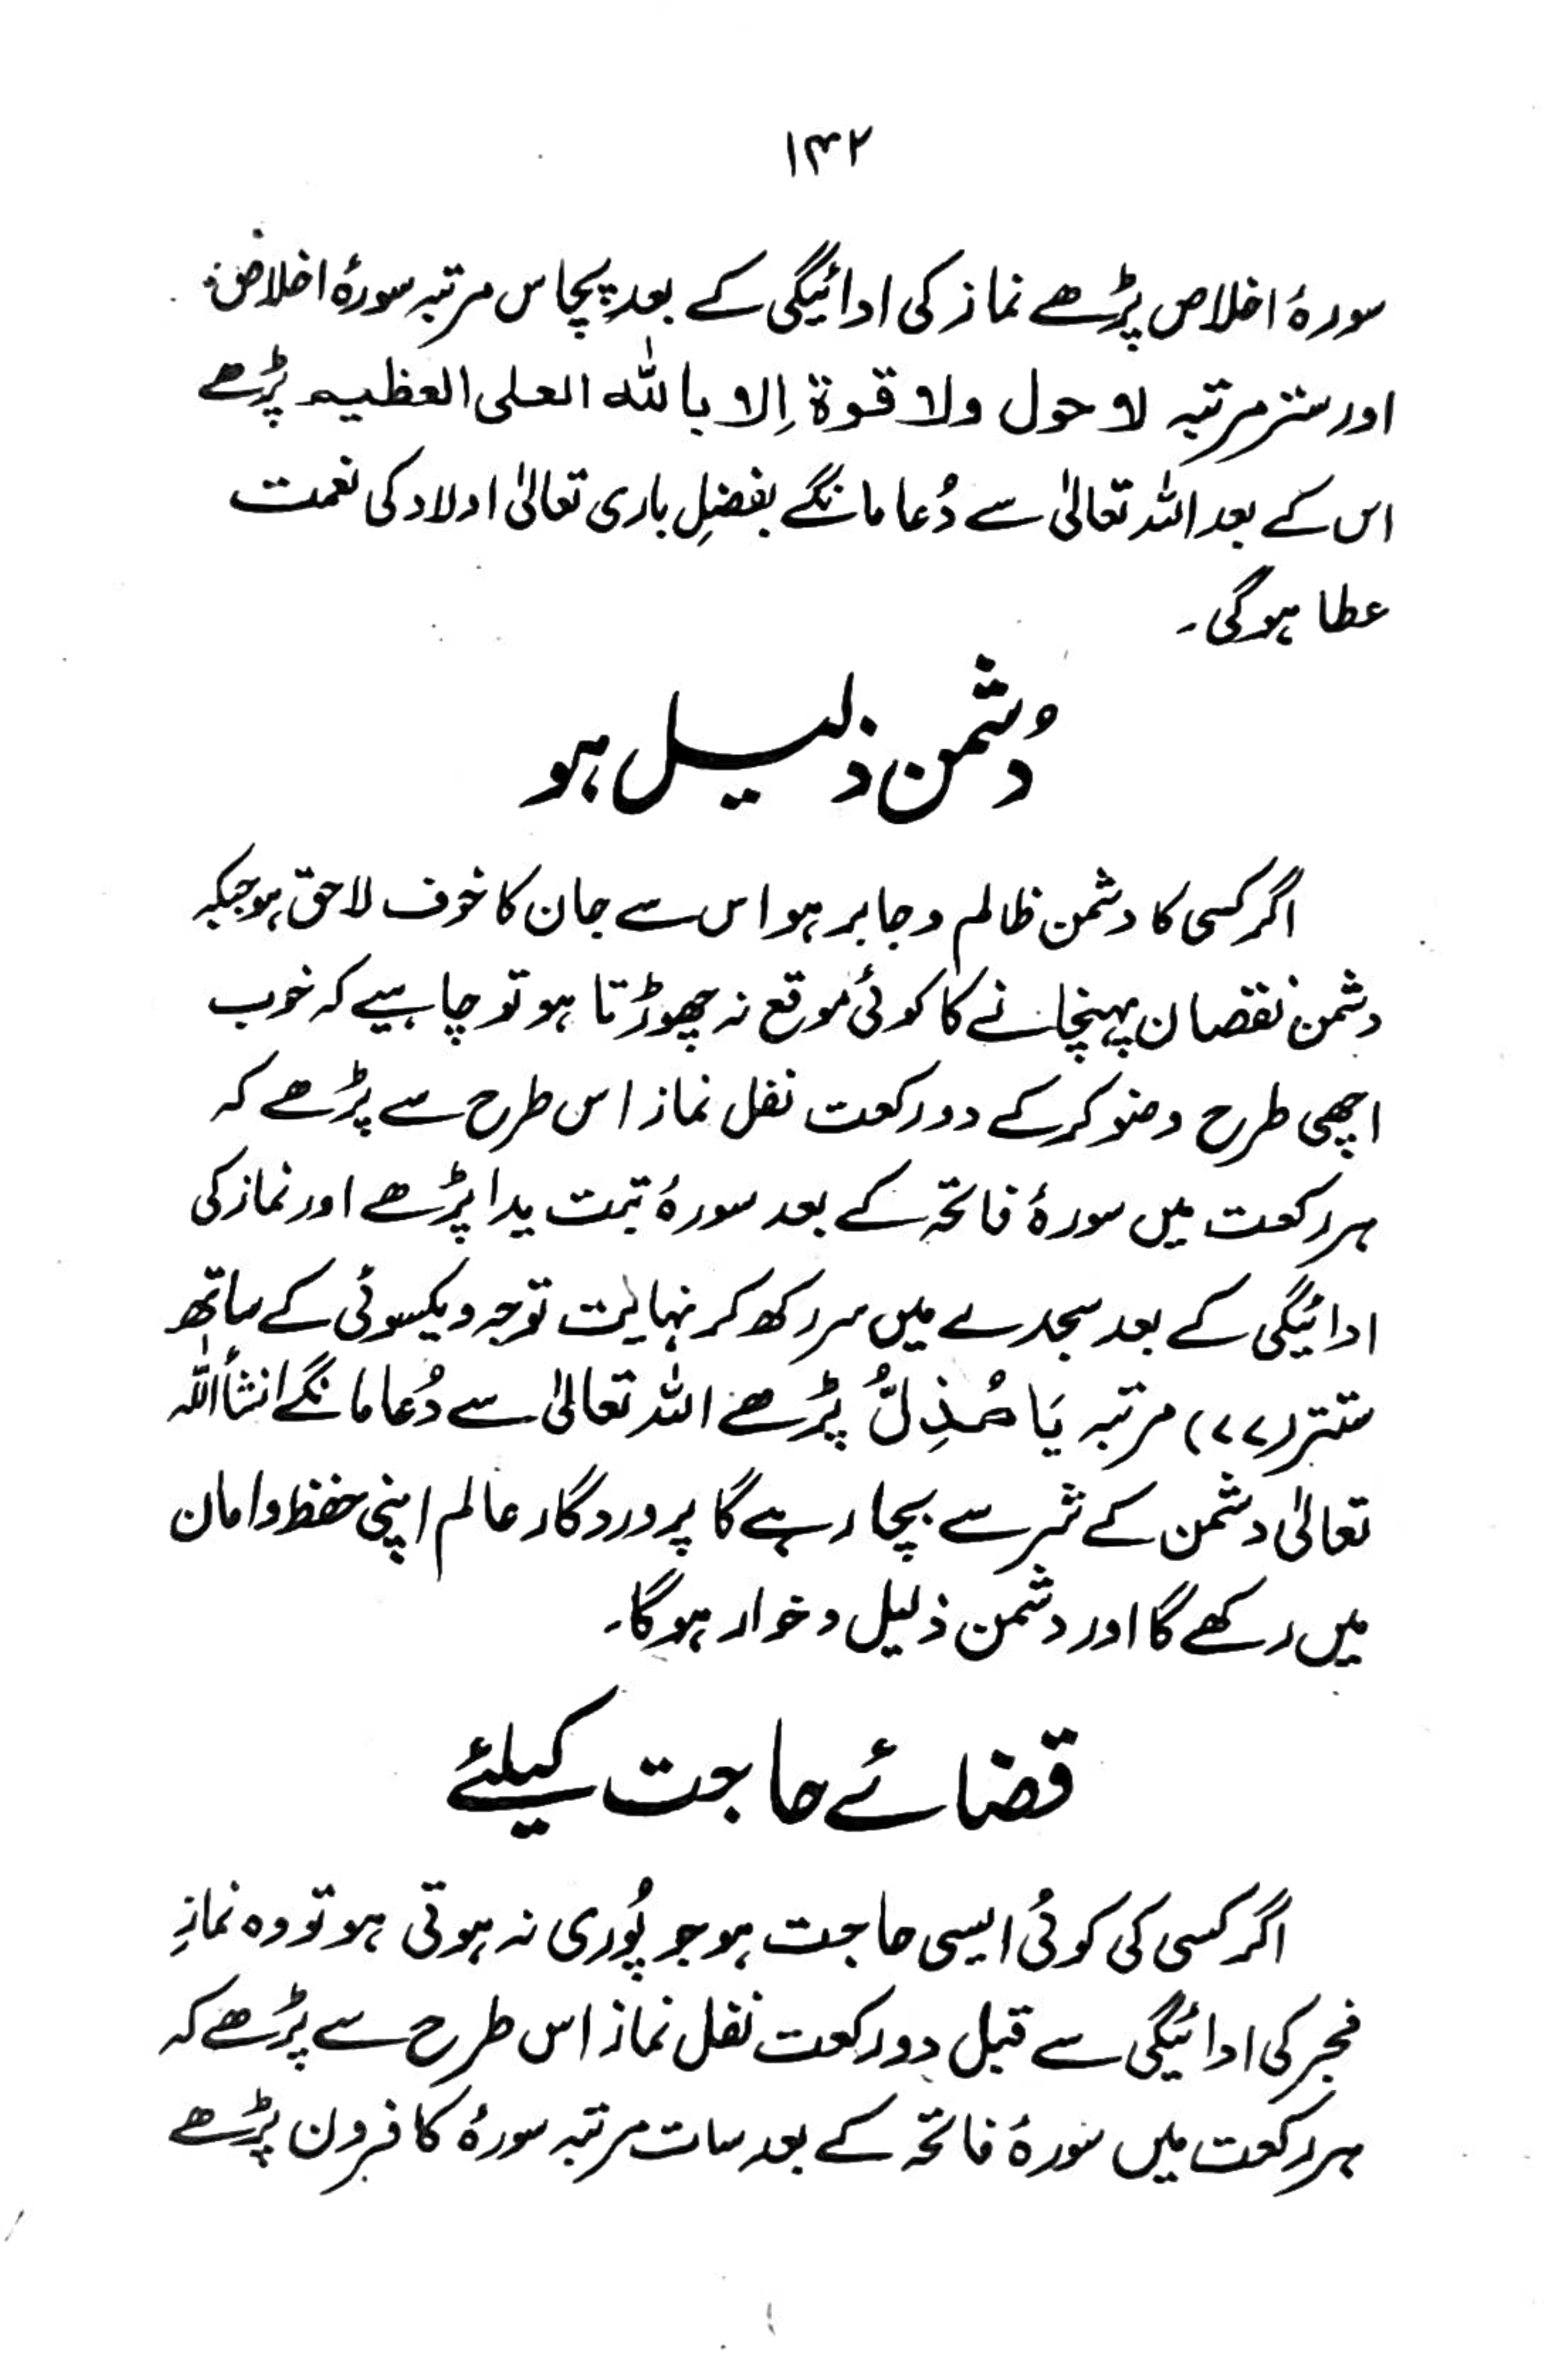 ۱۴۲
سورۂ اخلاص پڑھے نماز کی ادائیگی کے بعد پچاس مرتبہ سورۂ اخلاص
اور ستر مرتبہ لا حول ولا قوة اِلا باللّٰه العلی العظیم پڑھے
اس کے بعد اللہ تعالیٰ سے دُعا مانگے بفضلِ باری تعالیٰ اولاد کی نعمت
عطا ہوگی۔
دُشمن ذلیل ہو
اگر کسی کا دشمن ظالم و جابر ہو اس سے جان کا خوف لاحق ہو جبکہ
دشمن نقصان پہنچانے کا کوئی موقع نہ چھوڑتا ہو تو چاہیے کہ خوب
اچھی طرح وضو کر کے دو رکعت نفل نماز اس طرح سے پڑھے کہ
ہر رکعت میں سورۂ فاتحہ کے بعد سورۂ تبت یدا پڑھے اور نماز کی
ادائیگی کے بعد سجدے میں سر رکھ کر نہایت توجہ و یکسوئی کے ساتھ
ستتر (۷۷) مرتبہ یَا مُذِلُّ پڑھے اللہ تعالیٰ سے دُعا مانگے انشأ اللہ
تعالیٰ دشمن کے شر سے بچا رہے گا پروردگار عالم اپنی حفظ و امان
میں رکھے گا اور دشمن ذلیل و خوار ہوگا۔
قضائے حاجت کیلئے
اگر کسی کی کوئی ایسی حاجت ہو جو پُوری نہ ہوتی ہو تو وہ نمازِ
فجر کی ادائیگی سے قبل دو رکعت نفل نماز اس طرح سے پڑھے کہ
ہر رکعت میں سورۂ فاتحہ کے بعد سات مرتبہ سورۂ کافرون پڑھے